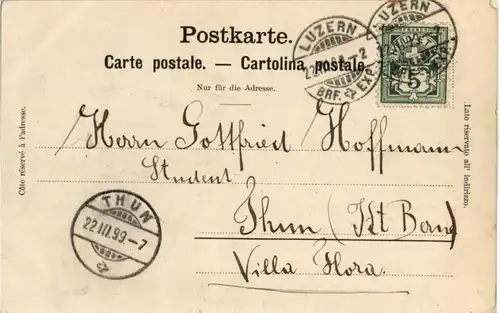 Postkarte.
Carte postale. — Cartolina postale.
Nur für die Adresse.
Côte réservé à l'adresse.
Lato riservato all' indirizzo.
LUZERN
BRF. EXP.
LUZERN
5
Herrn Gottfried Hoffmann
Student
Thun (Kt Bern)
Villa Flora.
THUN
22.III.99.–7